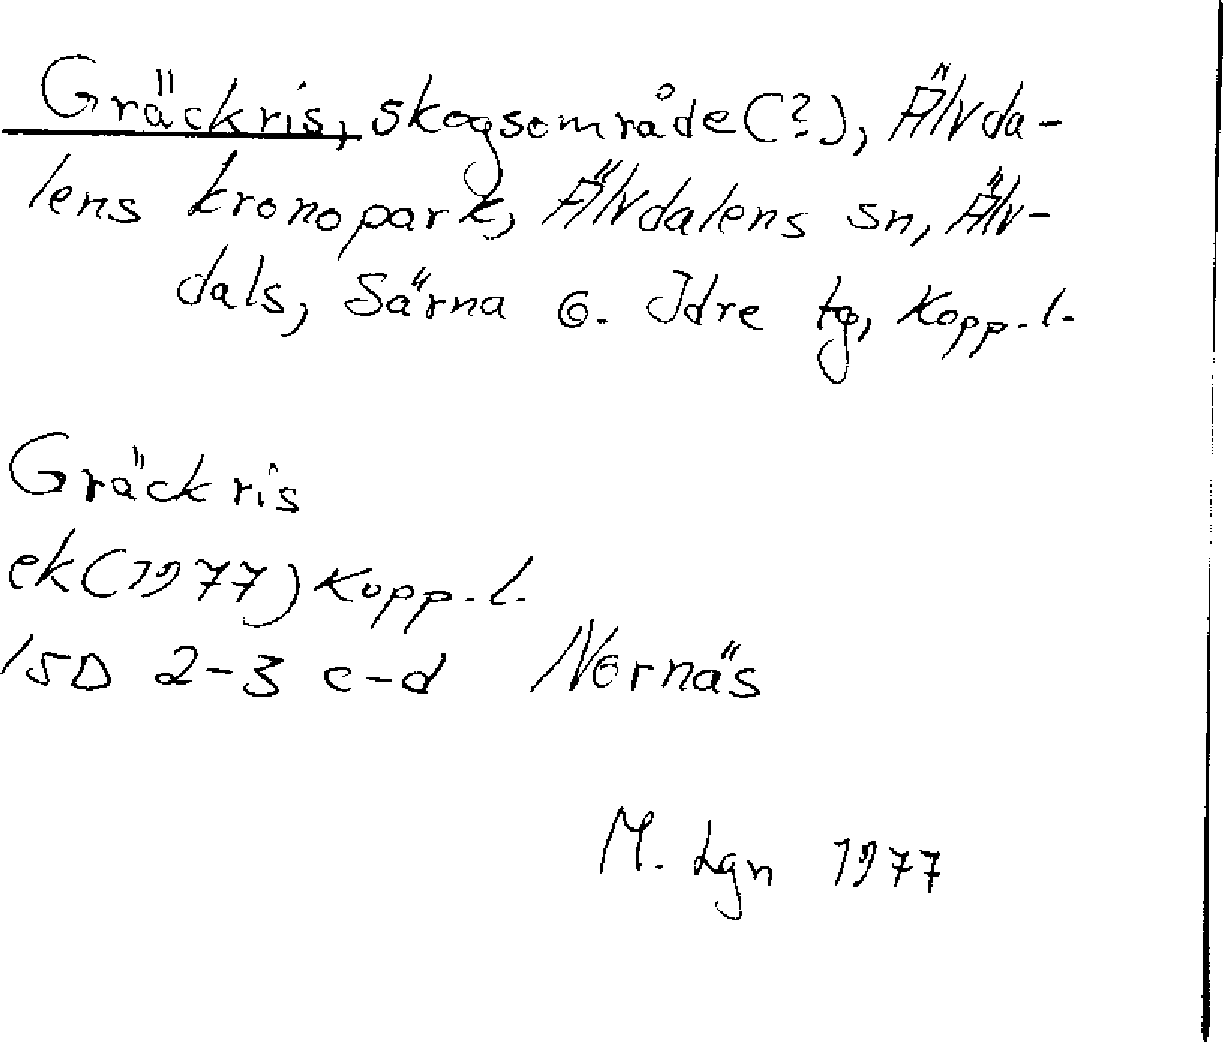 Gräckris, skogsområde (?), Älvda-
lens kronopark, Älvdalens sn, Älv-
dals, Särna o. Idre tg, Kopp. l.
Gräckris
ek (1977) Kopp. l.
15D 2-3 c-d Nornäs
M. Lgn 1977